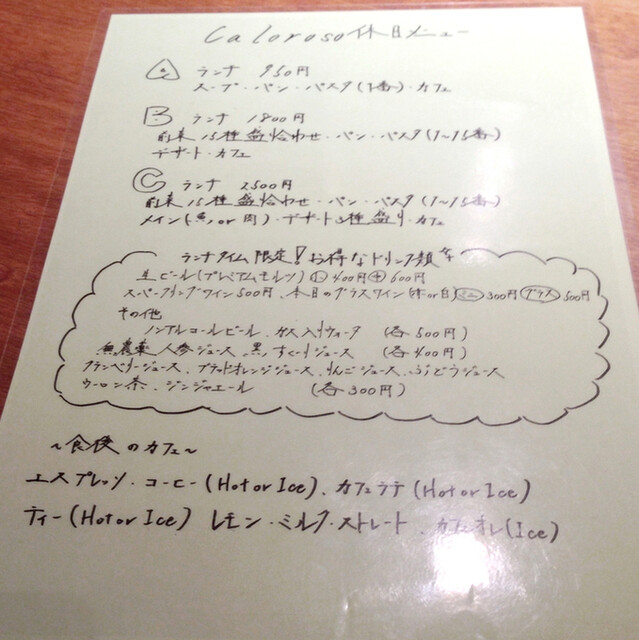 Caloroso 休日メニュー
A ランチ 950円
スープ・パン・パスタ(1番)・カフェ
B ランチ 1800円
前菜 15種盛拾わせ・パン・パスタ(1〜15番)
デザート・カフェ
C ランチ 2500円
前菜 15種盛拾わせ・パン・パスタ(1〜15番)
メイン(魚 or 肉)・デザート3種盛り・カフェ
ランチタイム限定!お得なドリンク類
生ビール(プレミアムモルツ) 小 400円 中 600円
スパークリングワイン 500円、本日のグラスワイン(赤or白) ミニ 300円 グラス 500円
その他
ノンアルコールビール、ガス入りウォータ (各500円)
無農薬人参ジュース、黒すぐりジュース (各400円)
クランベリージュース、ブラッドオレンジジュース、りんごジュース、ぶどうジュース
ウーロン茶、ジンジャエール (各300円)
〜食後のカフェ〜
エスプレッソ・コーヒー(Hot or Ice)、カフェラテ(Hot or Ice)
ティー(Hot or Ice) レモン・ミルク・ストレート、カフェオレ(Ice)